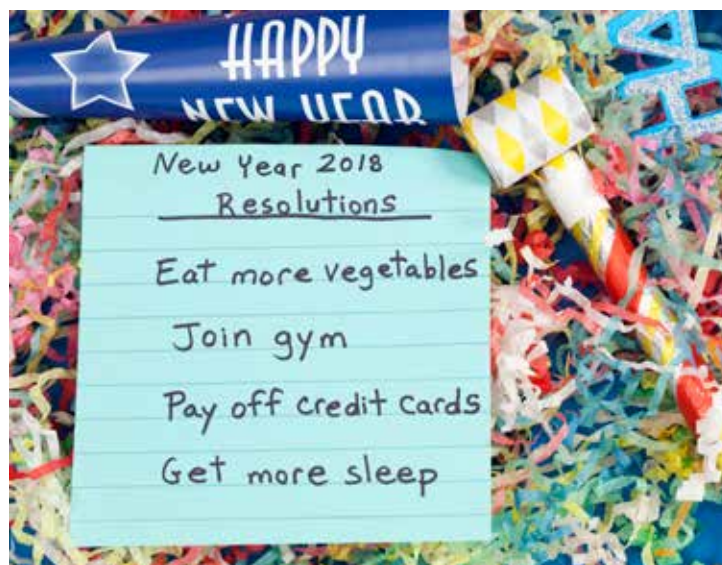 HAPPY
NEW YEAR
HA
New Year 2018
Resolutions
Eat more vegetables
Join gym
Pay off credit cards
Get more sleep